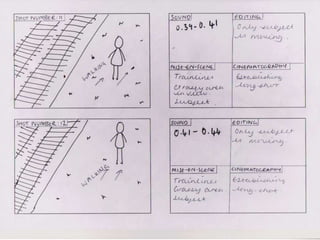 SHOT NUMBER: 11
WALKING
SOUND
0.34-0.41
EDITING
Only subject
is moving.
MISE-EN-SCENE
Trainlines
Grassy area
in view
Subject
CINEMATOGRAPHY
Establishing
long-shot
SHOT NUMBER: 12
WALKING
SOUND
0.41-0.44
EDITING
Only subject
is moving
MISE-EN-SCENE
Trainlines
Grassy area
Subject
CINEMATOGRAPHY
Establishing
long-shot